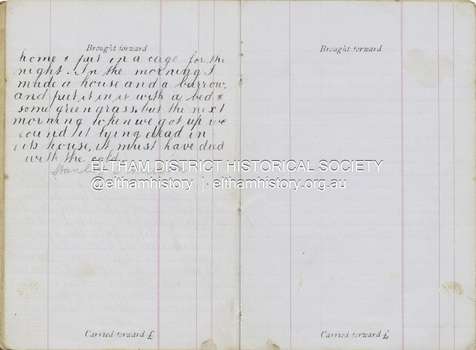 Brought forward
home & put in a cage for the
night. In the morning I
made a house and a burrow
and put it in it with a bed &
some green grass, but the next
morning when we got up we
found it lying dead in
its house, it must have died
with the cold.
Carried forward £
Brought forward
Carried forward £
ELTHAM DISTRICT HISTORICAL SOCIETY
@elthamhistory | elthamhistory.org.au